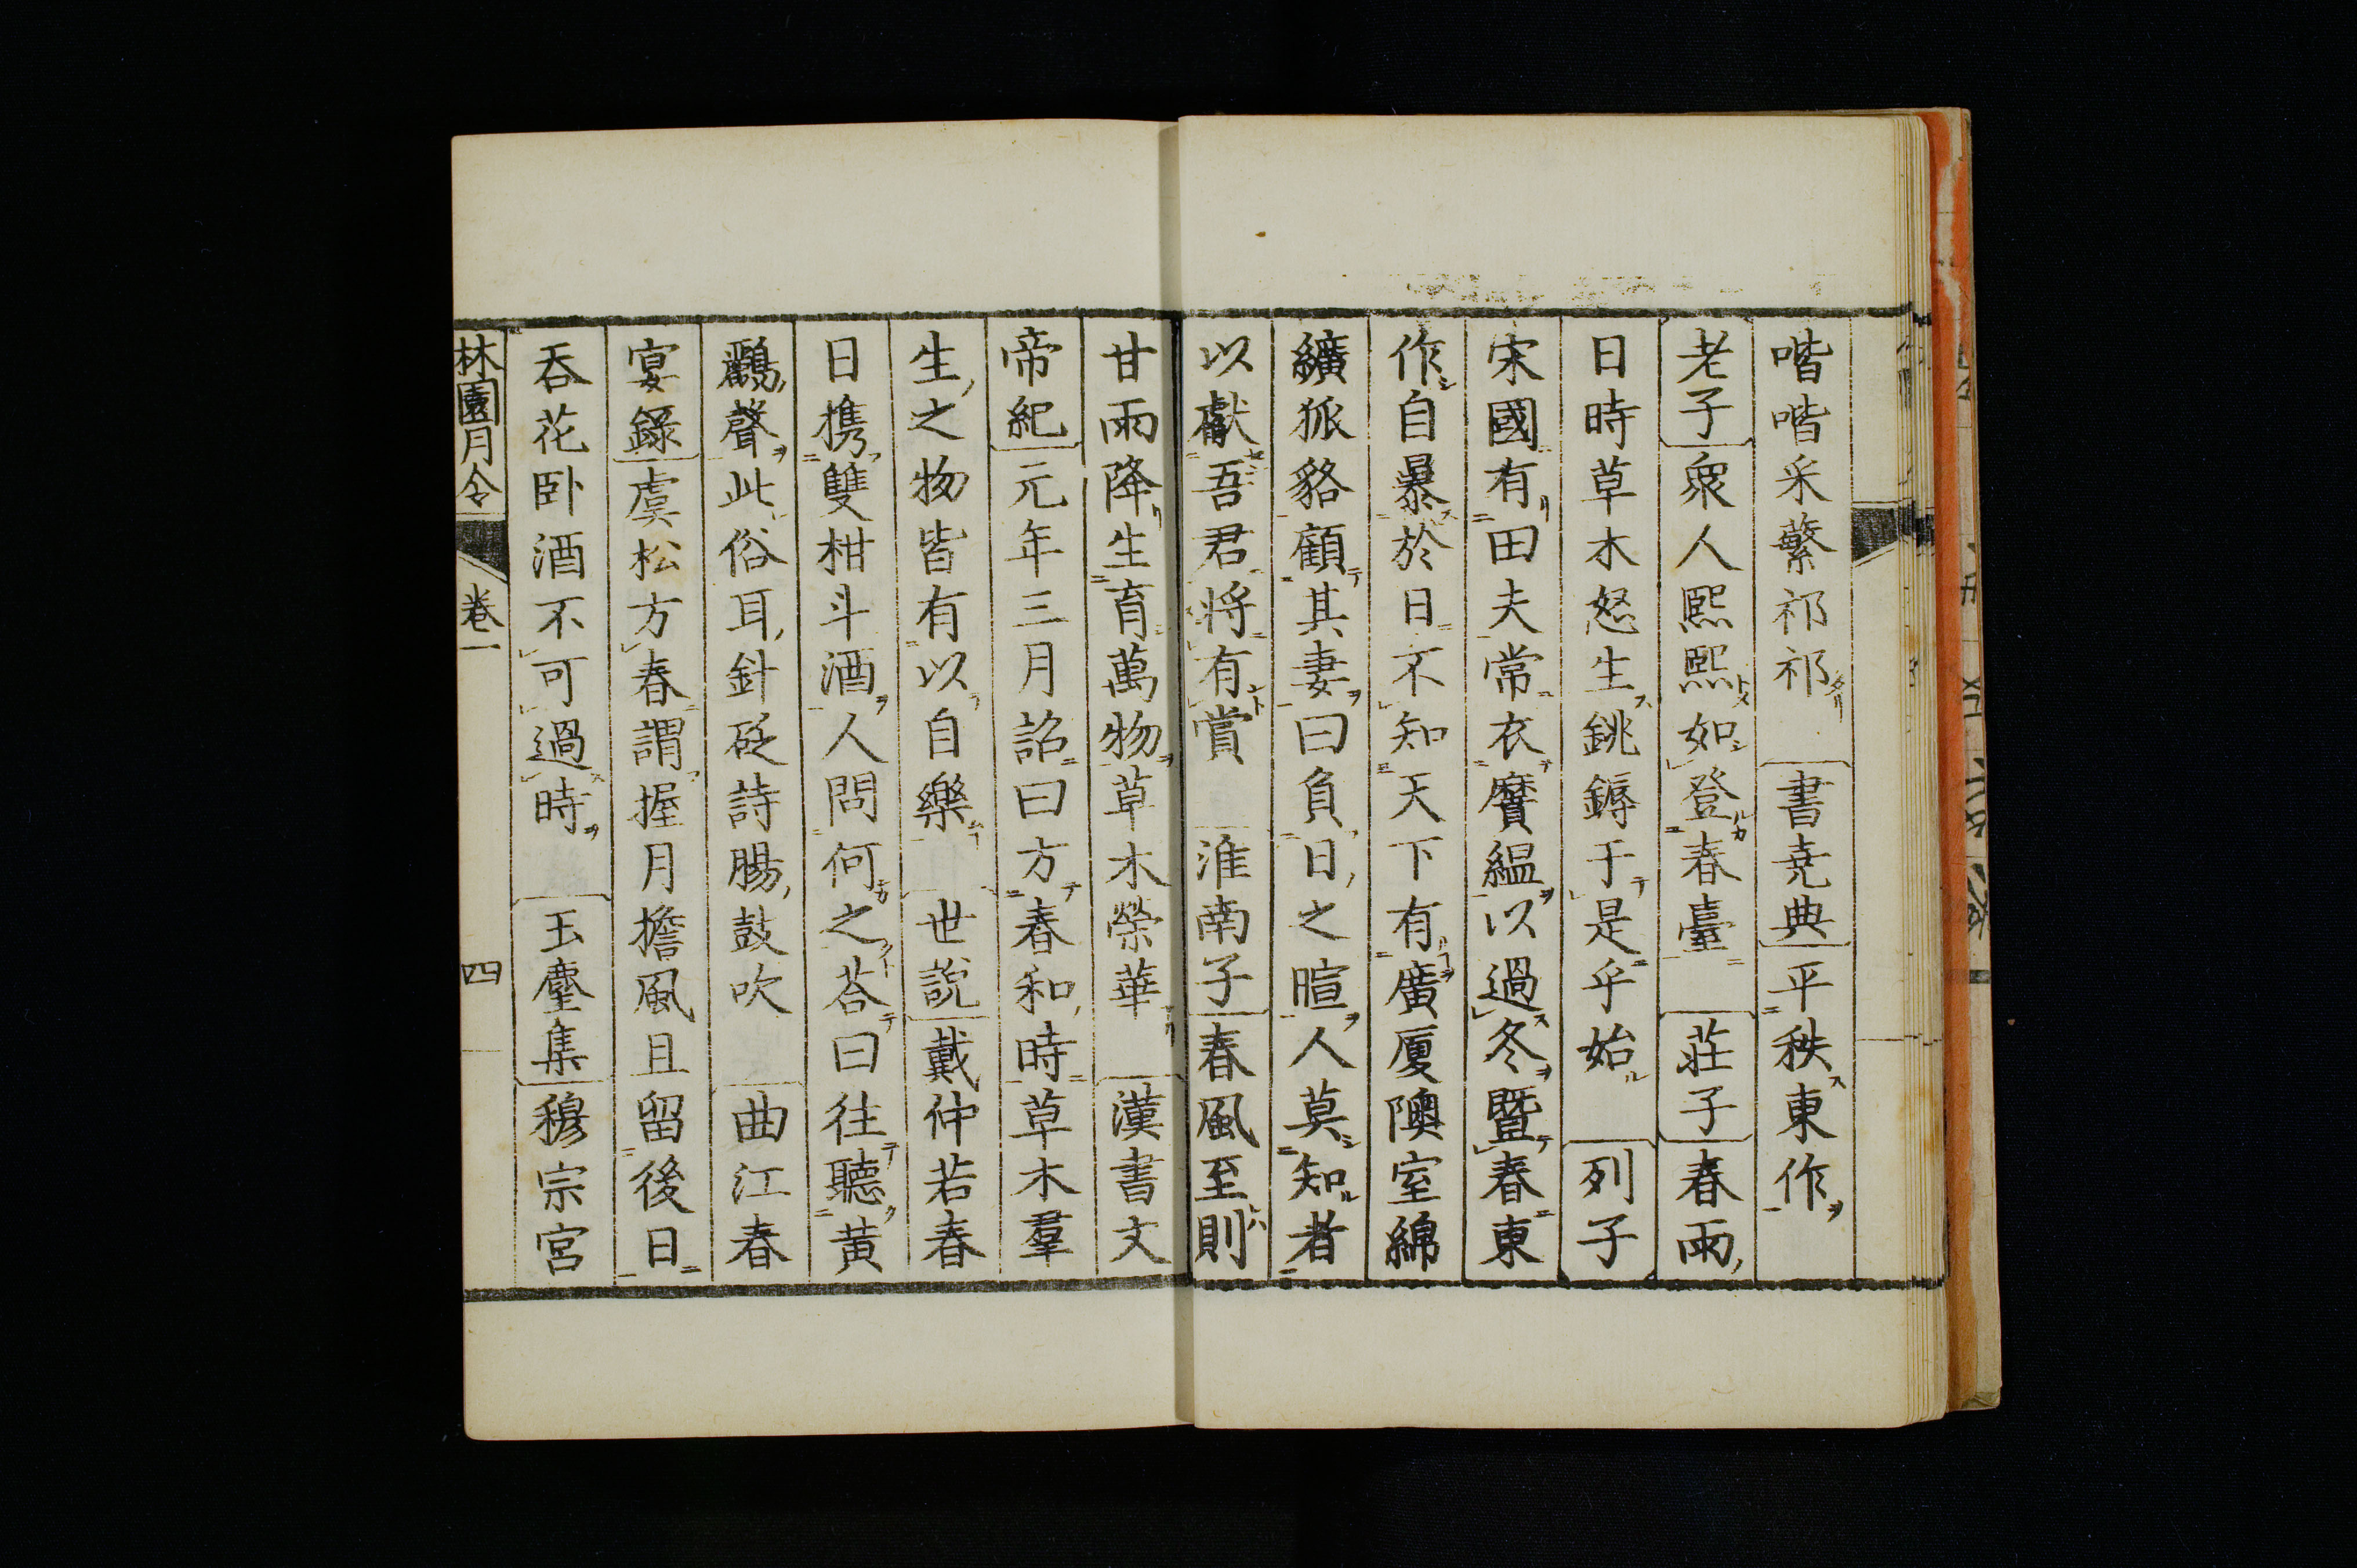 喈喈采蘩祁祁 書堯典平秩東作
老子衆人熙熙如登春臺 莊子春雨
日時草木怒生銚鎒于是乎始 列子
宋國有田夫常衣黂縕以過冬暨春東
作自暴於日不知天下有廣厦隩室綿
纊狐貉顧其妻曰負日之暄人莫知者
以獻吾君將有賞 淮南子春風至則
甘雨降生育萬物草木榮華 漢書文
帝紀元年三月詔曰方春和時草木羣
生之物皆有以自樂 世説戴仲若春
日携雙柑斗酒人問何之荅曰往聽黄
鸝聲此俗耳針砭詩腸鼓吹 曲江春
宴錄虞松方春謂握月擔風且留後日
吞花卧酒不可過時 玉麈集穆宗宮
林園月令 卷一 四